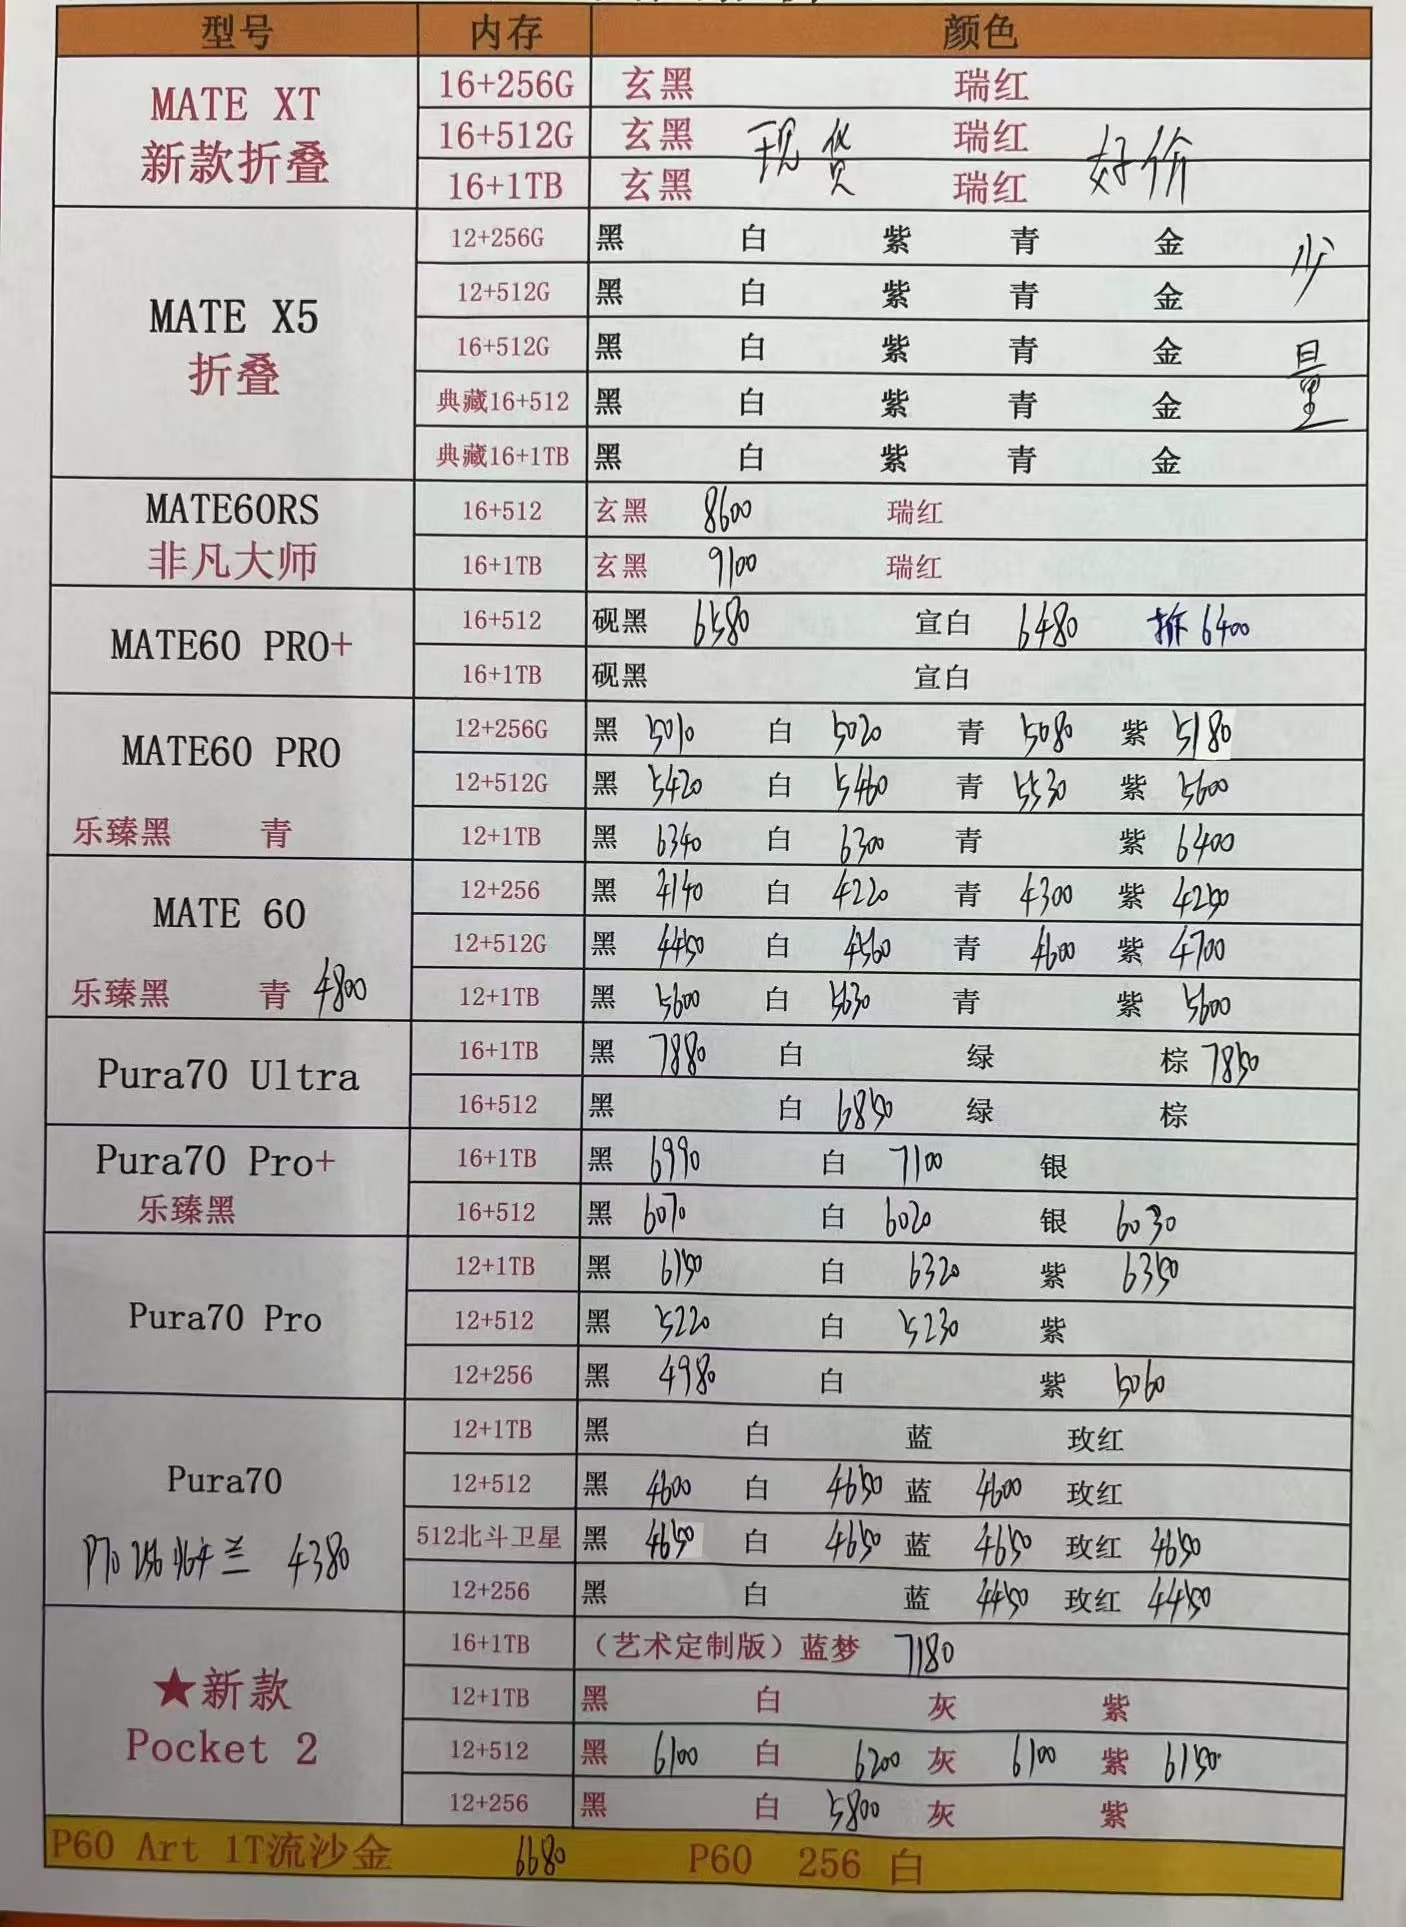 型号 内存 颜色
MATE XT
新款折叠
16+256G 玄黑 瑞红
16+512G 玄黑 现货 瑞红 好价
16+1TB 玄黑 瑞红
MATE X5
折叠
12+256G 黑 白 紫 青 金 少量
12+512G 黑 白 紫 青 金
16+512G 黑 白 紫 青 金
典藏16+512 黑 白 紫 青 金
典藏16+1TB 黑 白 紫 青 金
MATE60RS
非凡大师
16+512 玄黑 8600 瑞红
16+1TB 玄黑 9100 瑞红
MATE60 PRO+
16+512 砚黑 6580 宣白 6480 拆6400
16+1TB 砚黑 宣白
MATE60 PRO
乐臻黑 青
12+256G 黑 5010 白 5020 青 5080 紫 5180
12+512G 黑 5420 白 5460 青 5530 紫 5600
12+1TB 黑 6340 白 6300 青 紫 6400
MATE 60
乐臻黑 青 4800
12+256 黑 4140 白 4220 青 4300 紫 4250
12+512G 黑 4450 白 4560 青 4600 紫 4700
12+1TB 黑 5600 白 5630 青 紫 5600
Pura70 Ultra
16+1TB 黑 7880 白 绿 棕 7850
16+512 黑 白 6850 绿 棕
Pura70 Pro+
乐臻黑
16+1TB 黑 6990 白 7100 银
16+512 黑 6070 白 6020 银 6030
Pura70 Pro
12+1TB 黑 6150 白 6320 紫 6350
12+512 黑 5220 白 5230 紫
12+256 黑 4980 白 紫 5060
Pura70
P70 256 兰 4380
12+1TB 黑 白 蓝 玫红
12+512 黑 4600 白 4650 蓝 4600 玫红
512北斗卫星 黑 4650 白 4650 蓝 4650 玫红 4650
12+256 黑 白 蓝 4450 玫红 4450
★新款
Pocket 2
16+1TB （艺术定制版）蓝梦 7180
12+1TB 黑 白 灰 紫
12+512 黑 6100 白 6200 灰 6100 紫 6150
12+256 黑 白 5800 灰 紫
P60 Art 1T流沙金 6680 P60 256 白